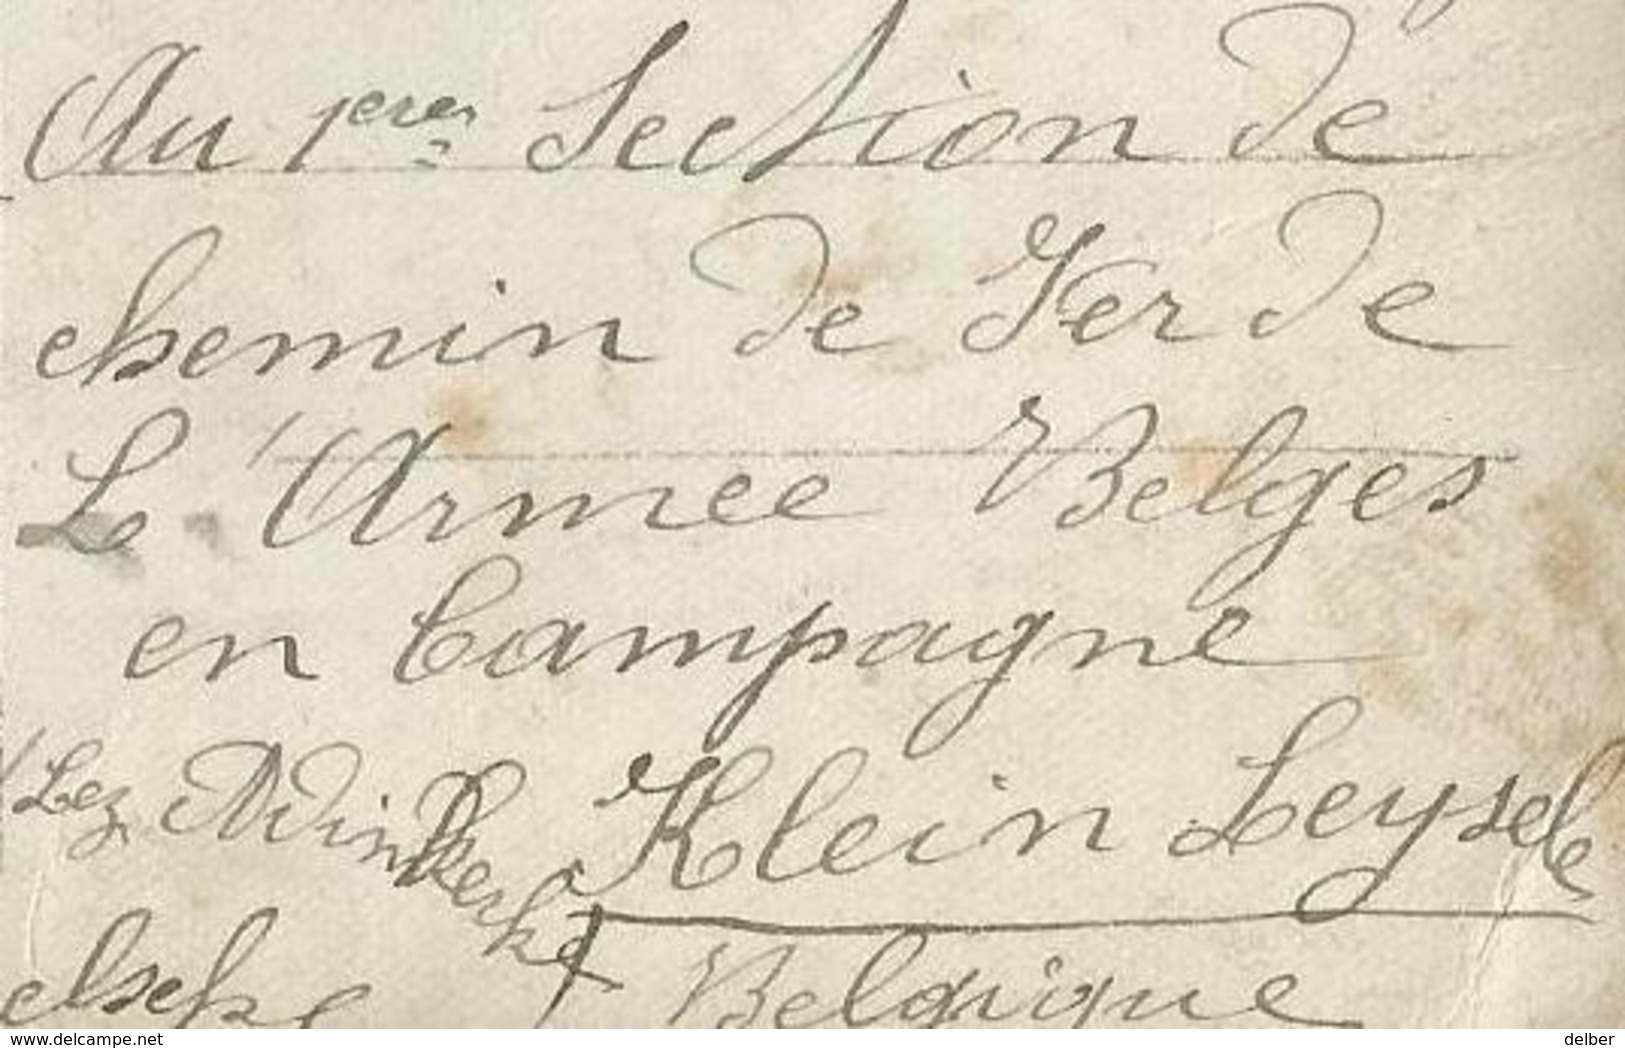 Au 1erer Section de
chemin de Fer de
L'Armee Belges
en Campagne
(Lez Adinkerke) Klein Leysele
Belgique
www.delcampe.net delber